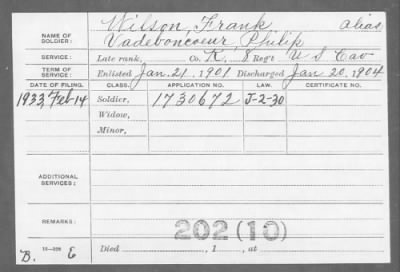 Wilson, Frank alias
NAME OF SOLDIER: Vadeboncoeur, Philip
SERVICE: Late rank, Co. K, 8 Reg't U S Cav
TERM OF SERVICE: Enlisted Jan. 21, 1901 Discharged Jan 20, 1904
DATE OF FILING. CLASS. APPLICATION NO. LAW. CERTIFICATE NO.
1933, Feb-14 Soldier, 1730672 J-2-30
Widow,
Minor,
ADDITIONAL SERVICES:
REMARKS: 202 (10)
Died , 1 , at
B. E